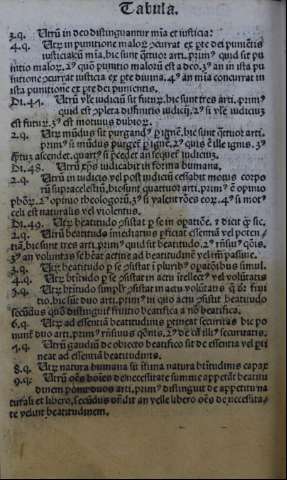 Tabula.
3.q. Utrũ in deo distinguantur mĩa et iusticia:
4.q. Utrum in punitione maloꝝ ꝯcurrat ex ꝑte dei puniẽtis
iusticia ⁊ mĩa, hic sunt q̃tuor arti. primꝰ quid sit pu
nitio maloꝝ, 2ꝰ quõ punitio maloꝝ est a deo, 3ꝰ an in ista pu
nitione ꝯcurrat iusticia ex ꝑte diuina, 4ꝰ an mĩa concurrat in
ista punitione ex ꝑte dei punientis.
Di.47. Utrũ vl̃e iudiciũ sit futurũ, hic sunt tres arti. primꝰ
quid est cõpleta distinctio iudicij, 2ꝰ si vl̃e iudiciũ
est futurũ, 3ꝰ est motiuus dubioꝝ.
2.q. Utrũ mũdus sit purgandꝰ ꝑ ignẽ, hic sunt q̃tuor arti.
primꝰ si mũdus purget ꝑ ignẽ, 2ꝰ quis ẽ ille ignis, 3ꝰ
q̃ntũ ascendet, quartꝰ si p̃cedet an sequet iudiciũ.
Di.48. Utrũ xp̃s iudicabit in forma humana,
2.q. Utrũ in iudicio vel post iudiciũ cessabit motus corpo
rũ supracelestiũ, hic sunt quattuor arti. primꝰ ẽ opinio
ph̃oꝝ, 2ꝰ opinio theologoꝝ, 3ꝰ si valent rões eoꝝ, 4ꝰ si mot
celi est naturalis vel violentus.
Di.49. Utrũ beatitudo ꝯsistat ꝑ se in oꝑatiõe, ⁊ dicit ꝙ sic.
2.q. Utrũ beatitudo imediatius ꝑficiat essentiã vel poten
tiã, hic sunt tres arti. primꝰ quid sit beatitudo, 2ꝰ rñsiuꝰ q̃õis,
3ꝰ an voluntas se habeat actiue ad beatitudinẽ vel ĩm passiue.
3.q. Utrũ beatitudo ꝑ se ꝯsistat ĩ pluribꝰ oꝑatiõibus simul.
4.q. Utrũ btĩtudo ꝑ se ꝯsistat in actu ĩtellect⁹ vel volũtatis
5.q. Utrũ btĩtudo simpl̃r ꝯsistat in actu volũtatis q̃ dr̃ frui
tio, hic sũt duo arti. primꝰ in quo actu ꝯsistit beatitudo
secũdus quõ distinguit̃ fruitio beatifica a nõ beatifica.
6.q. Utrũ ad essentiã beatitudinis ꝑtineat securitas hic po
nunt̃ duo arti. primꝰ rñsiuus q̃õnis, 2ꝰ de cã ill⁹ securitatis.
7.q. Utrũ gaudiũ de obiecto beatifico sit de essentia vel ꝑti
neat ad essentiã beatitudinis.
8.q. Utrũ natura humana sit ĩfima natura btĩtudinis capax
9.q. Utrũ oẽs hoĩes de necessitate summe appetãt beatitu
dinem ponit̃ duos arti. primꝰ distinguit de appetitu na
turali et libero, secũdus oñdit an velle libero oẽs de necessita-
te velunt beatitudinem.